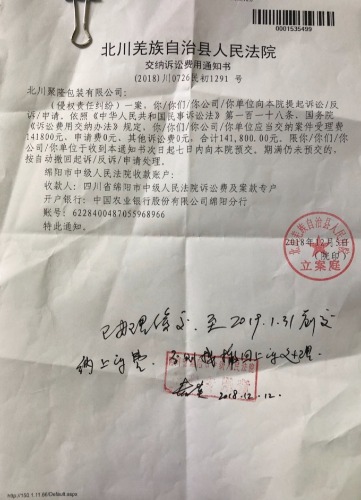 0001535499
北川羌族自治县人民法院
交纳诉讼费用通知书
(2018)川0726民初1291 号
北川聚隆包装有限公司:
(侵权责任纠纷)一案,你/你们/你公司/你单位向本院提起诉讼/反
诉/申请。依照《中华人民共和国民事诉讼法》第一百一十八条、国务院
《诉讼费用交纳办法》规定,你/你们/你公司/你单位应当交纳案件受理费
141800元,申请费0元,其他诉讼费0元,合计141,800.00元。限你/你们/你
公司/你单位于收到本通知书次日起七日内向本院预交。期满仍未预交的,
按自动撤回起诉/反诉/申请处理。
绵阳市中级人民法院收款账户:
收款人:四川省绵阳市中级人民法院诉讼费及案款专户
开户银行:中国农业银行股份有限公司绵阳分行
账号:6228400487055968966
特此通知。
2018年12月5日
(院印)
北川羌族自治县人民法院
立案庭
已办理缓交,至2019.1.31前交
纳上诉费
2018.12.12.
http://192.1.11.66/Default.aspx